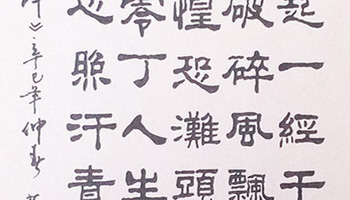 起一經干
破碎風飄
惶恐灘頭
零丁人生
心照汗青
》辛巳年仲春